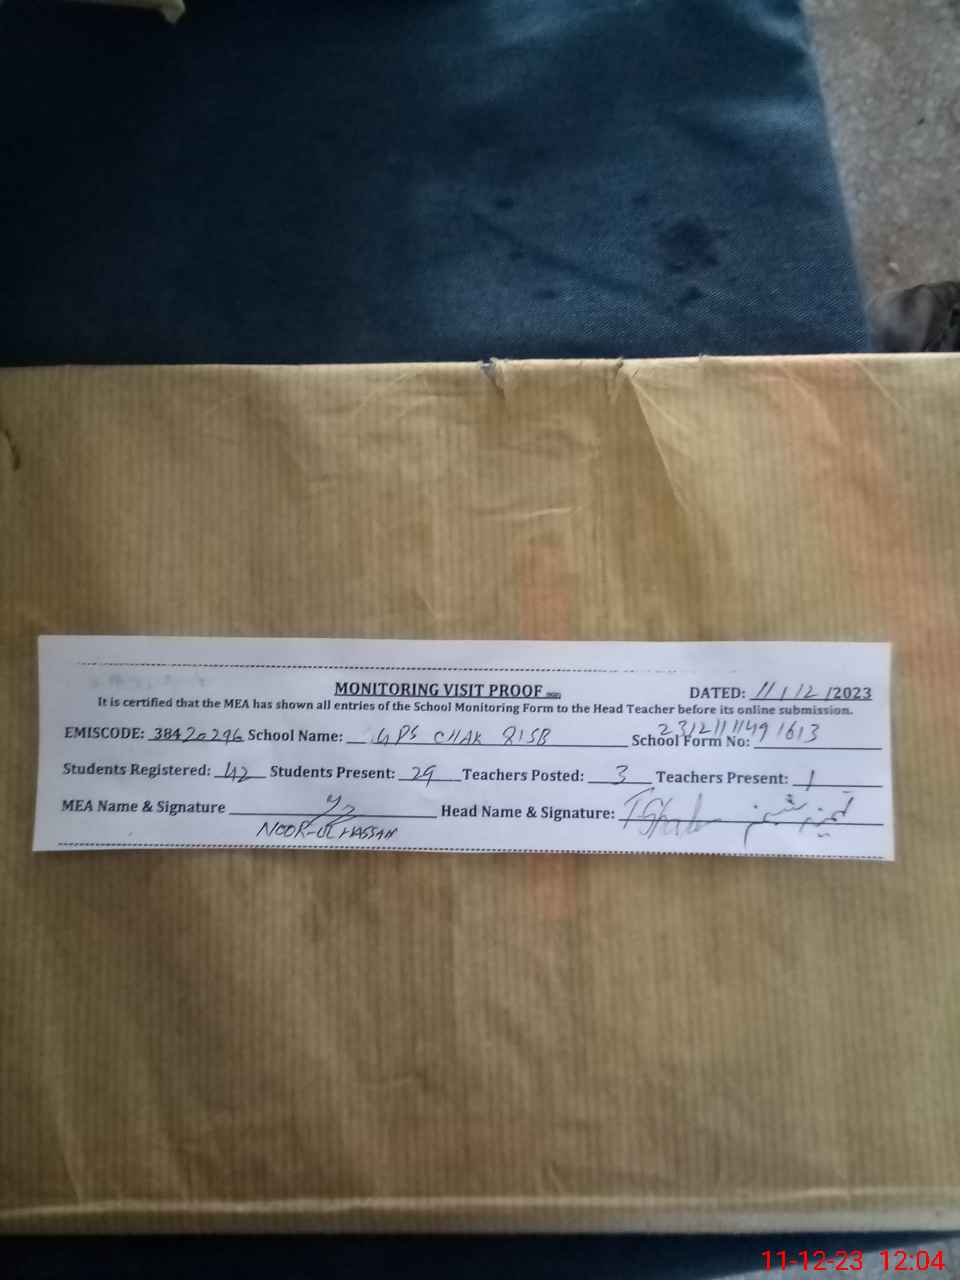 MONITORING VISIT PROOF
DATED: 11/12/2023
It is certified that the MEA has shown all entries of the School Monitoring Form to the Head Teacher before its online submission.
EMISCODE: 38420296 School Name: GPS CHAK 81SB School Form No: 23121111491613
Students Registered: 42 Students Present: 29 Teachers Posted: 3 Teachers Present: 1
MEA Name & Signature Head Name & Signature:
NOOR-UL HASSAN
11-12-23 12:04